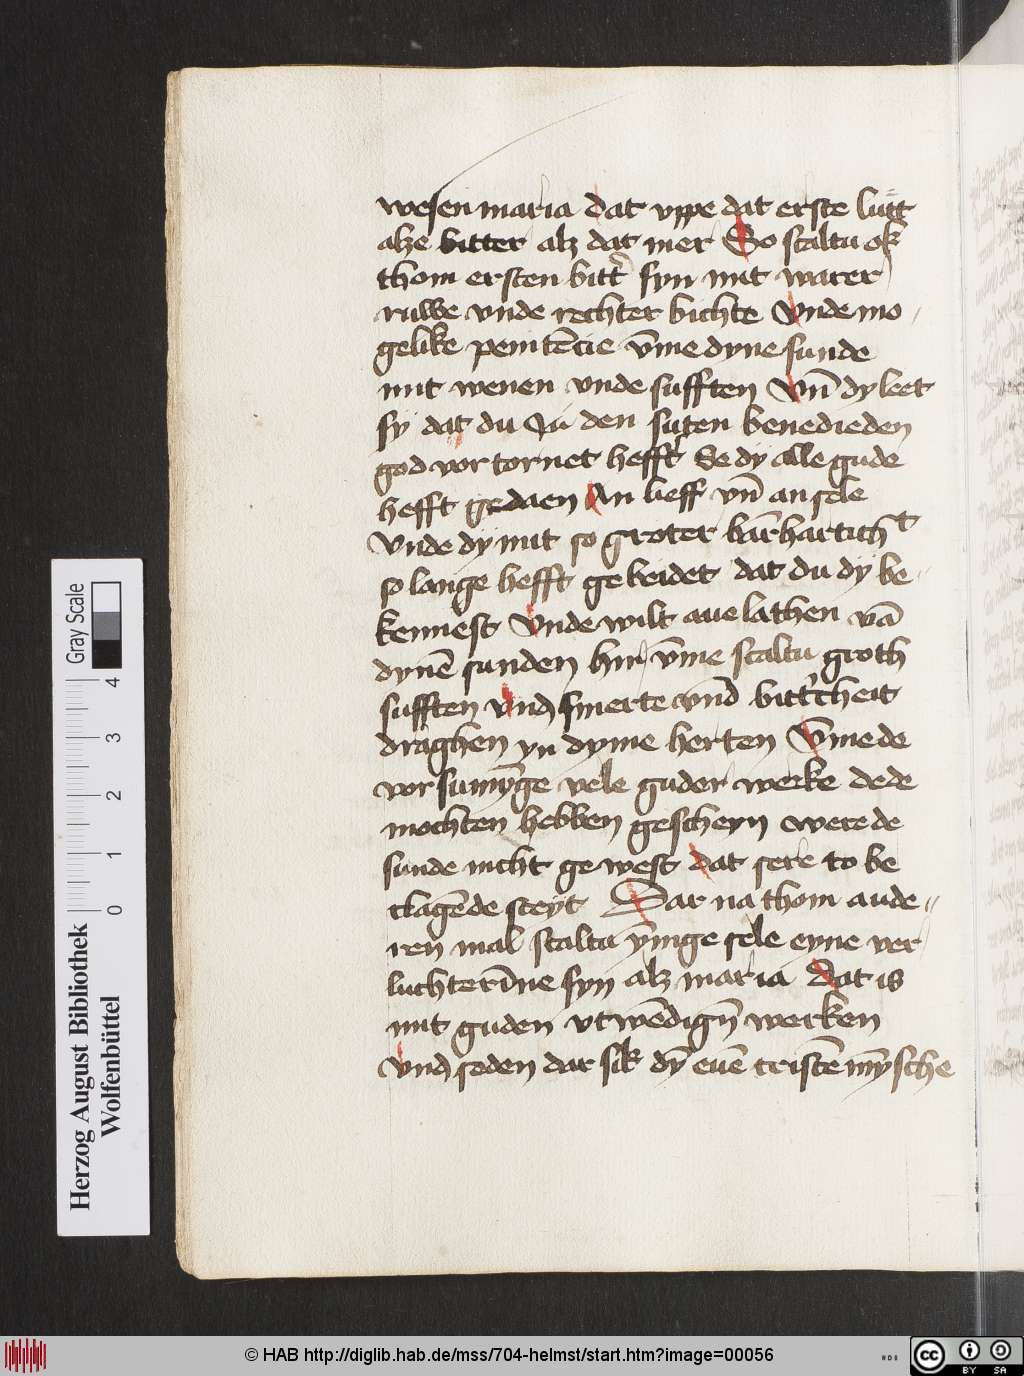 wesen maria dat vppe dat erste lutt
alze bitter alz dat mer So scaltu ok
thom ersten bitt̉ syn mit warer
ruwe vnde rechter bichte Vnde mo
gelike penitēcie v̄me dyne sunde
mit wenen vnde sufften Vn̄ dy leet
sy dat du Ju den suten benedieden
god vortornet hefft Se dy alle gude
hefft gedaen An lieff vn̄ an sele
Vnde dy mit so groter bārhartichᵗ
so lange hefft gebeidet dat du dy be
kennest Vnde wilt aue lathen vā
dynē sunden hir v̄me scaltu groth
sufften vnd smerte vnd bitt̉cheit
draghen yn dyme herten V̄me de
vorsumyge vele guder werke dede
mochten hebben gescheyn were de
sunde nicht gewest dat sere to be
clagēde steyt Dar na thom ande
ren mal scaltu ȳnige sele eyne ver
luchterīne syn alz maria Dat is
mit guden vtwēdigē werken
vnd seden dar sik dȳ euē cristē mȳsche
Gray Scale
0 1 2 3 4
Herzog August Bibliothek
Wolfenbüttel
© HAB http://diglib.hab.de/mss/704-helmst/start.htm?image=00056
cc BY SA